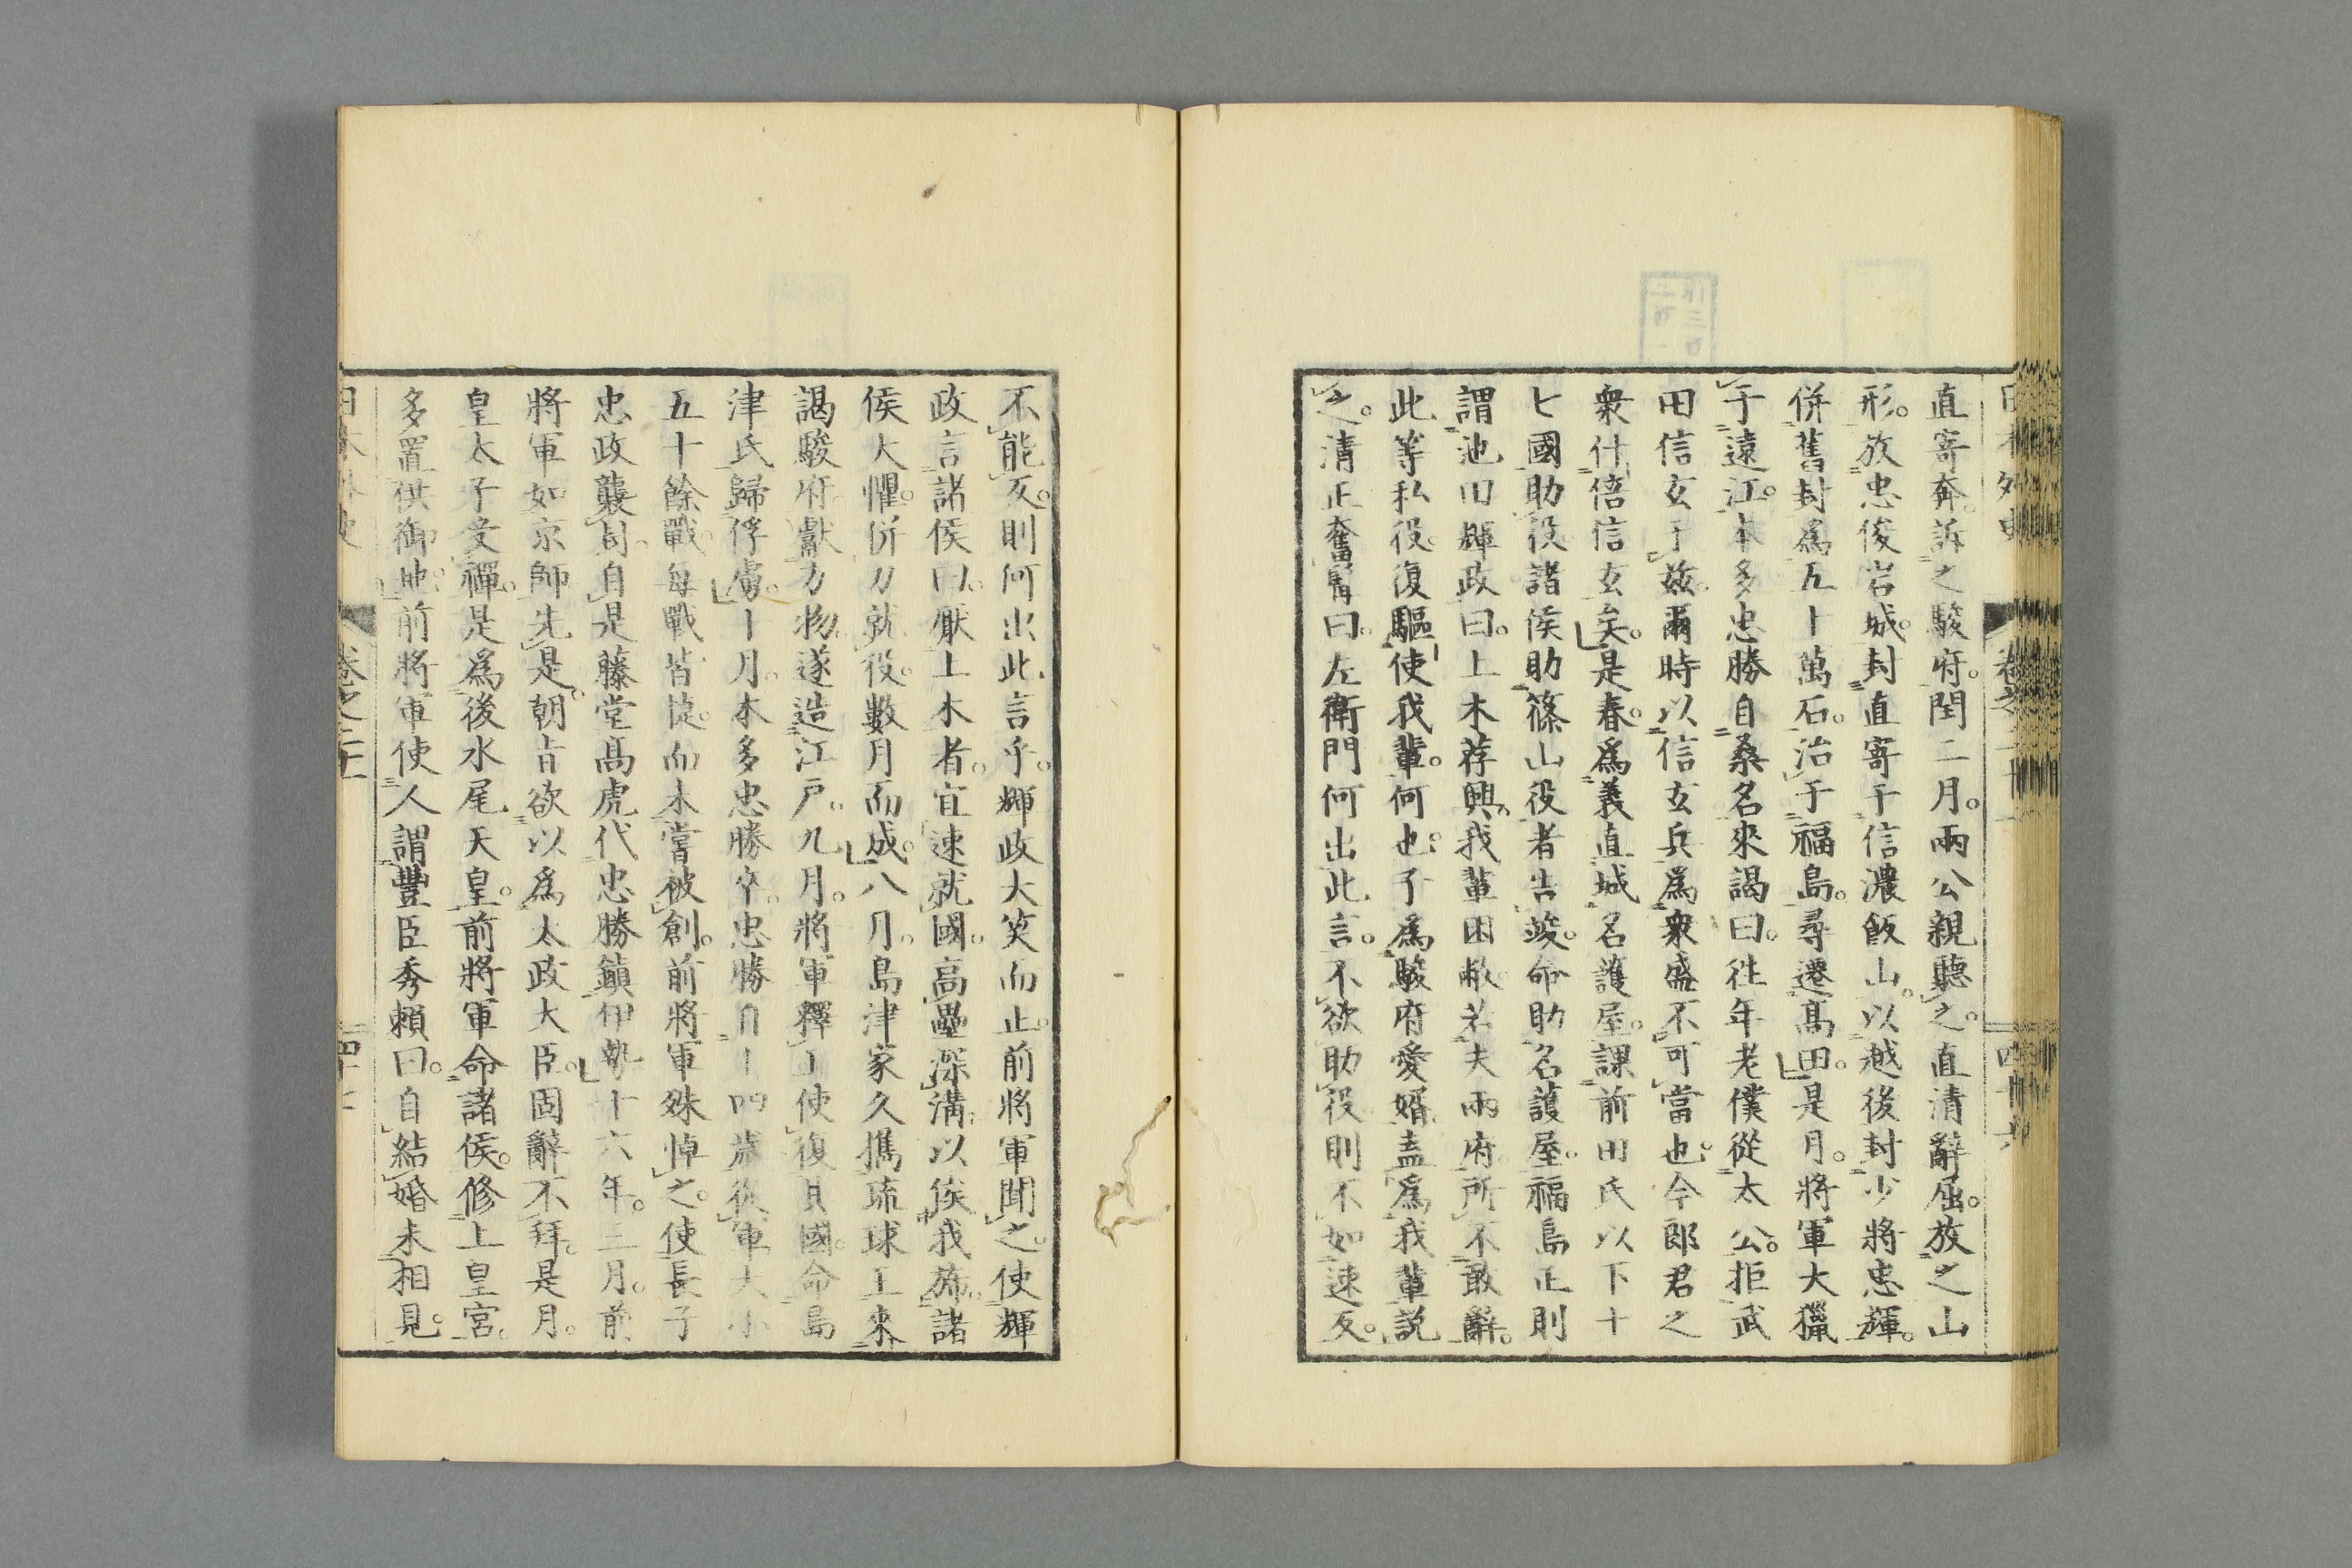 直寄奔。訴之駿府。閏二月。兩公親聽之。直清辭屈。放之山
形。放忠俊岩城。封直寄于信濃飯山。以越後封少將忠輝。
併舊封爲五十萬石。治于福島。尋遷高田。是月。將軍大獵
于遠江。本多忠勝自桑名來謁曰。往年老僕從太公。拒武
田信玄于茲。爾時以信玄兵爲衆盛不可當也。今郎君之
衆什倍信玄矣。是春。爲義直城名護屋。課前田氏以下十
七國助役。諸侯助篠山役者告竣。命助名護屋。福島正則
謂池田輝政曰。土木荐興。我輩困敝。若夫兩府所不敢辭。
此等私役。復驅使我輩。何也。子爲駿府愛婿。盍爲我輩説
之。清正奮髯曰。左衛門何出此言。不欲助役則不如速反。
不能反。則何出此言乎。輝政大笑而止。前將軍聞之。使輝
政言諸侯曰。厭土木者。宜速就國。高壘深溝以俟我旆。諸
侯大懼。併力就役。數月而成。八月。島津家久攜琉球王來
謁駿府。獻方物。遂造江戸。九月。將軍釋王使復其國。命島
津氏歸俘虜。十月。本多忠勝卒。忠勝自十四歳從軍。大小
五十餘戰。毎戰皆捷。而未嘗被創。前將軍殊悼之。使長子
忠政襲封。自是藤堂高虎代忠勝鎭伊勢。十六年。三月。前
將軍如京師。先是。朝旨欲以爲太政大臣。固辭不拜。是月。
皇太子受禪。是爲後水尾天皇。前將軍命諸侯。修上皇宮。
多置供御地。前將軍使人謂豐臣秀賴曰。自結婚未相見。